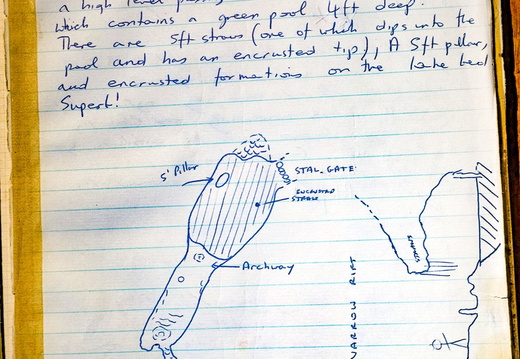 a high level
which contains a green pool 4ft deep.
There are 5ft straws (one of which dips into the
pool and has an encrusted tip), A 5ft pillar,
and encrusted formations on the lake bed
Superb!
5' Pillar
STAL. GATE
ENCRUSTED
STRAW
Archway
NARROW RIFT